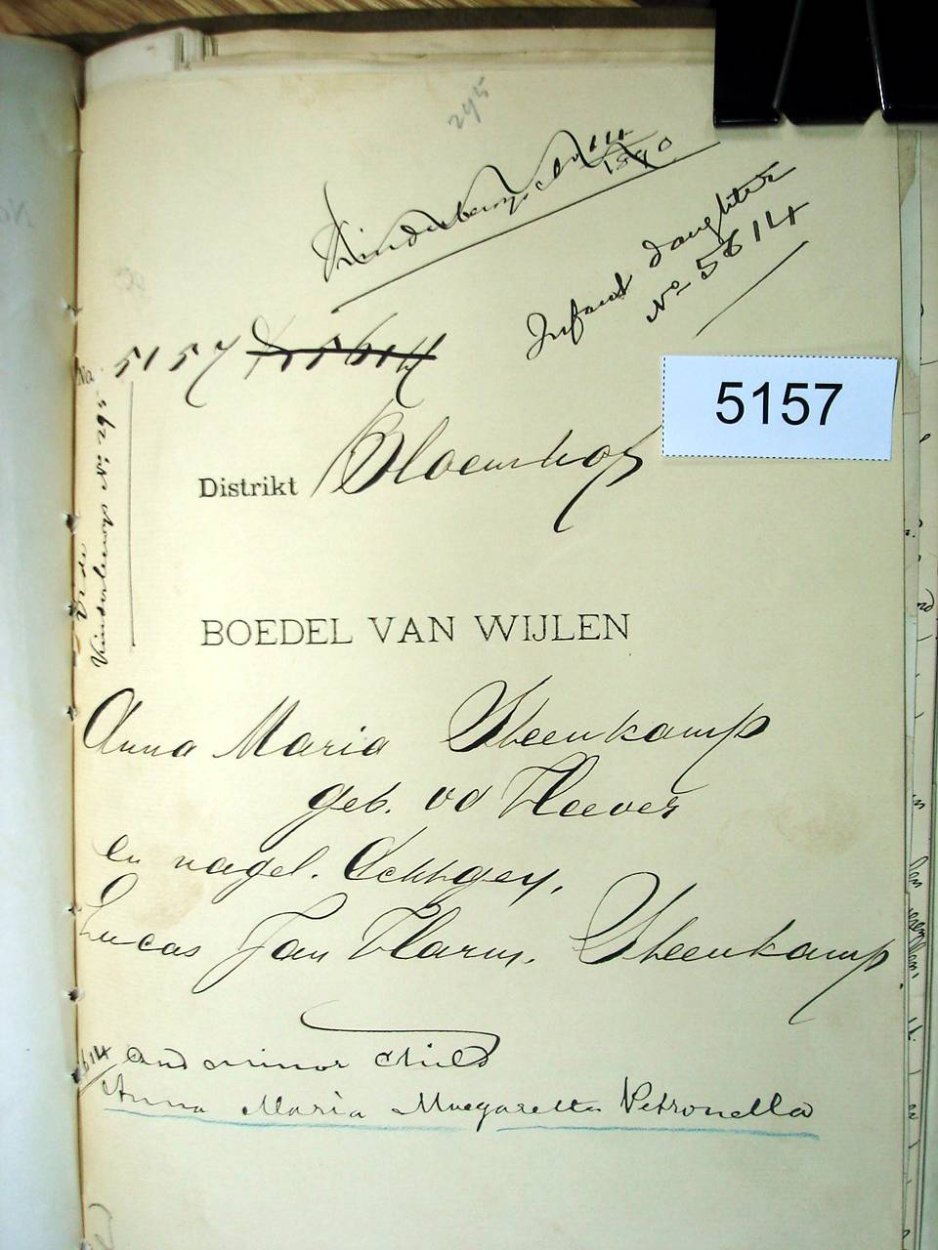 295
Kinderbewys No 111
1890
Infant daughter
No 5614
No. 5157 5614
5157
Vide
Kinderbewys No 295
Distrikt Bloemhof
BOEDEL VAN WIJLEN
Anna Maria Steenkamp
geb. vd Heever
en nagel. Echtgen.
Lucas Jan Harm. Steenkamp
5614 and minor child
Anna Maria Margaretta Petronella